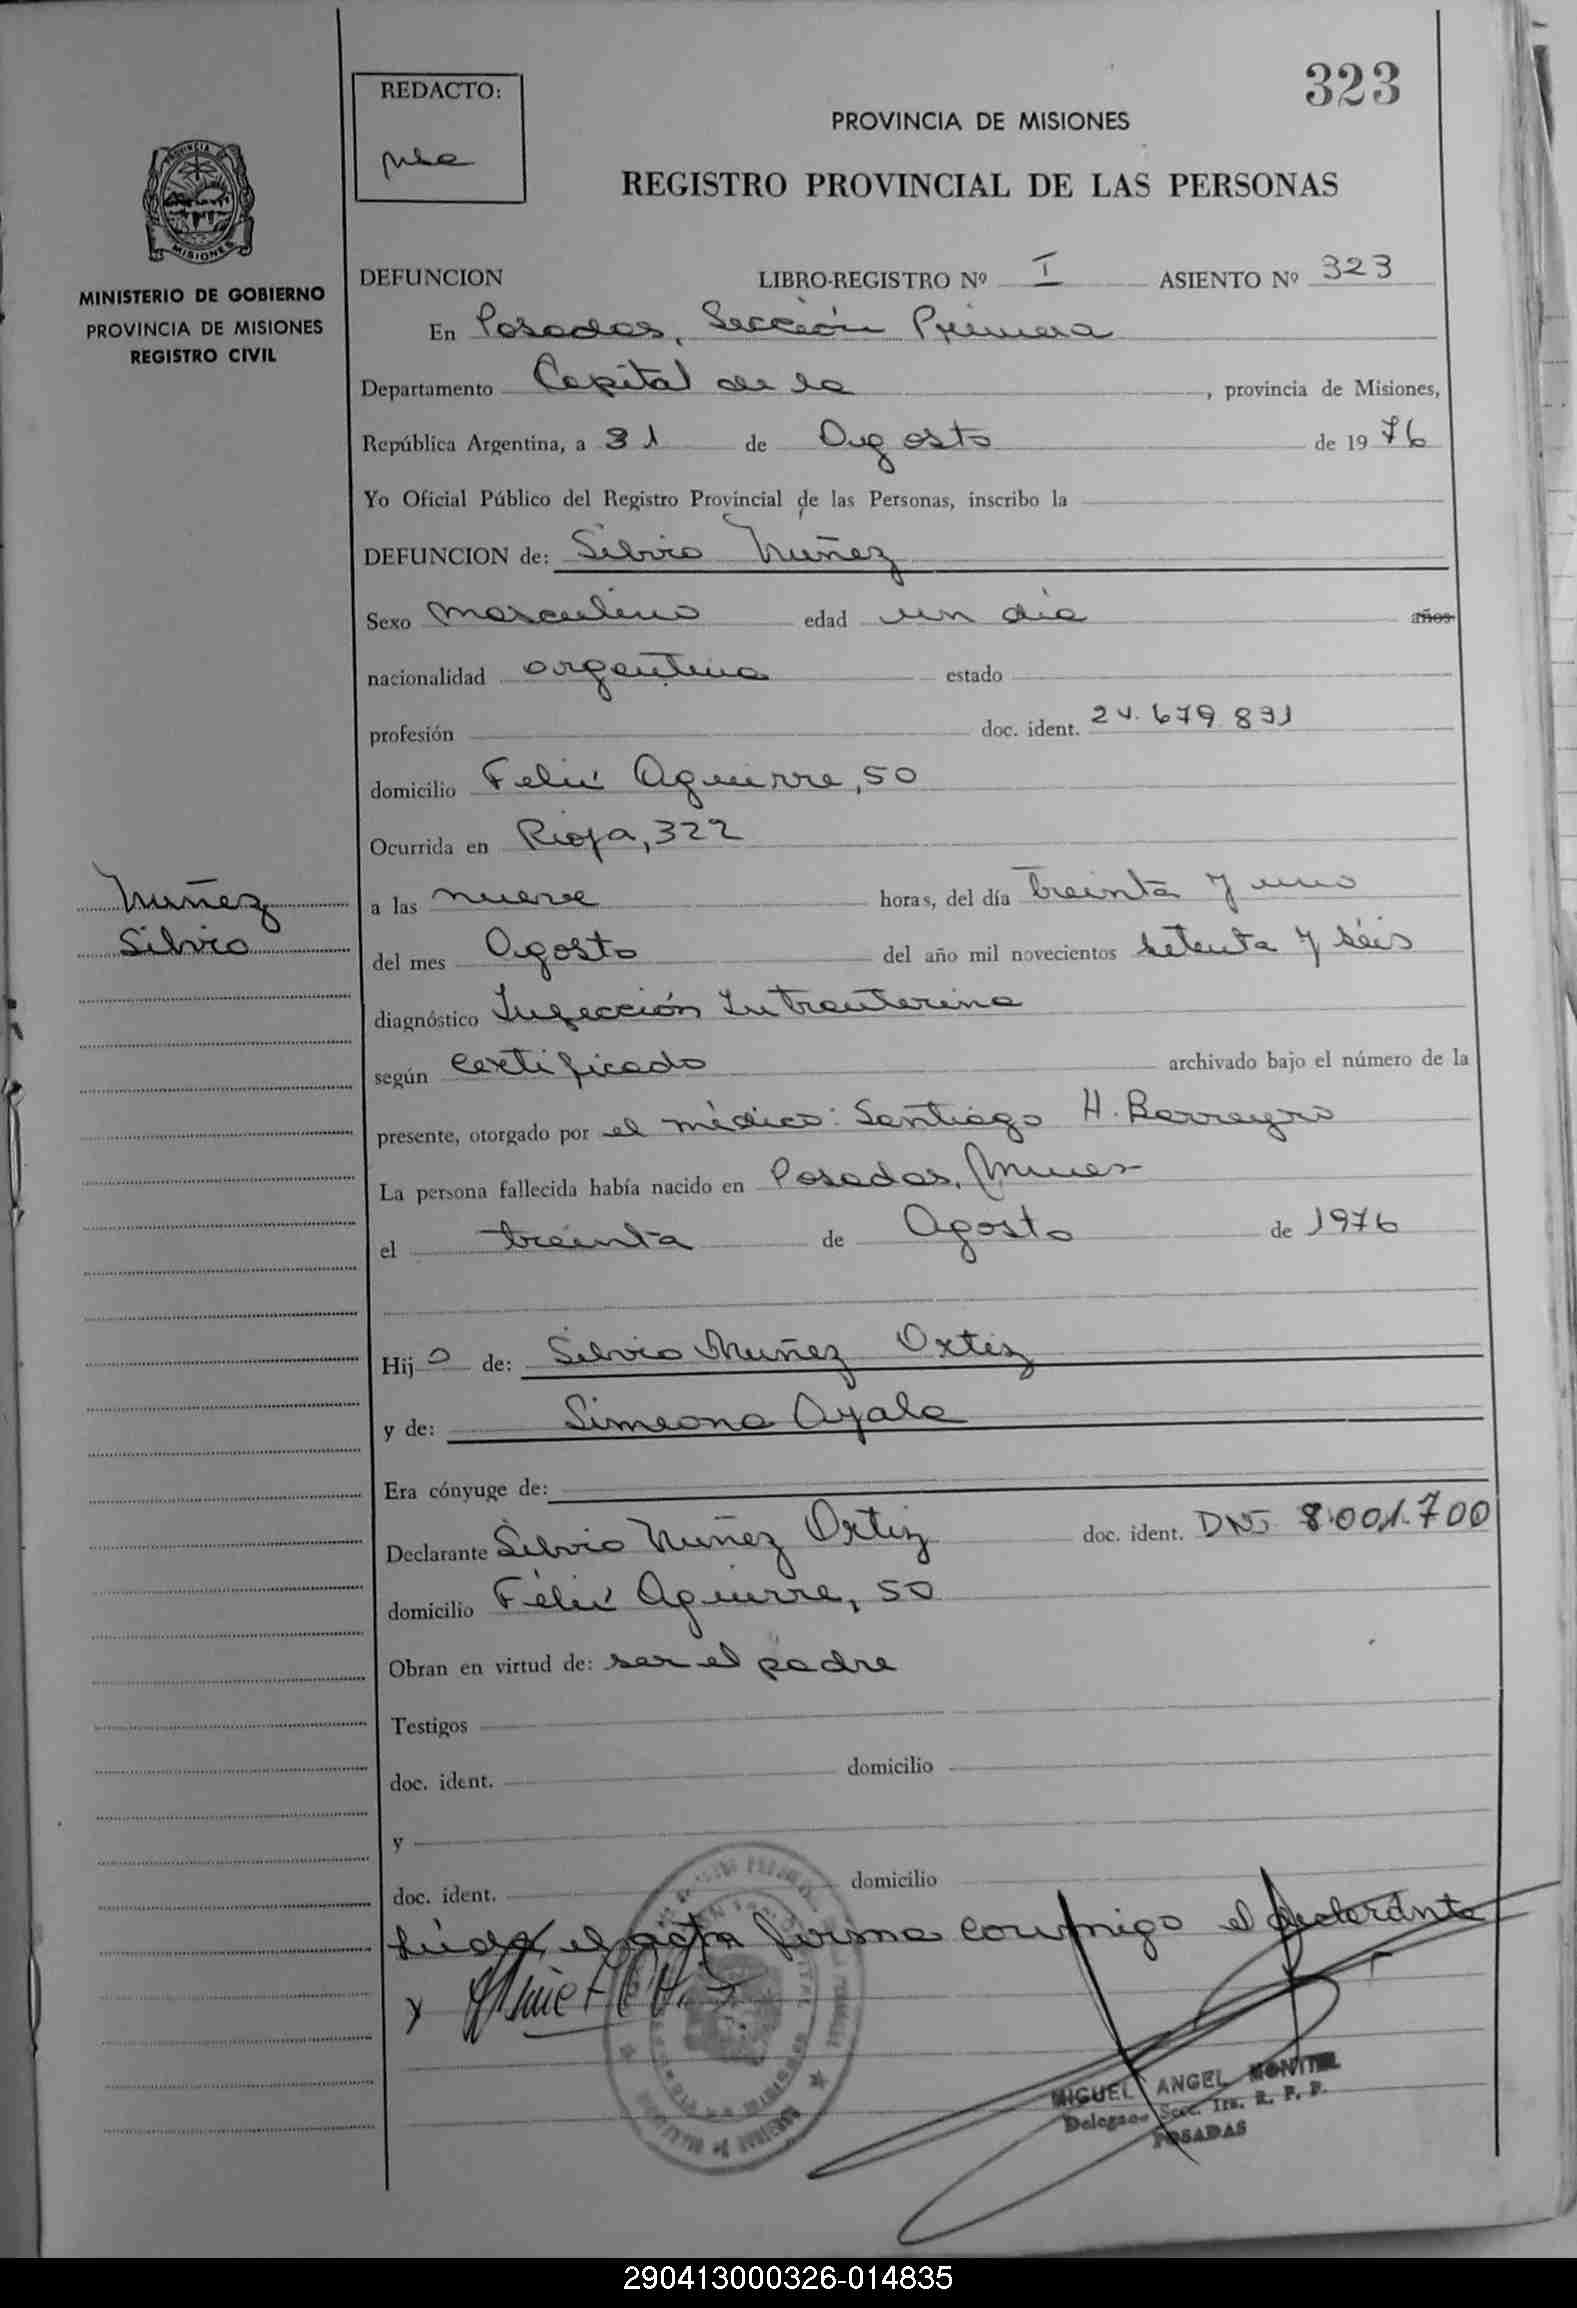 323
REDACTO:
PROVINCIA DE MISIONES
REGISTRO PROVINCIAL DE LAS PERSONAS
PROVINCIA DE
MISIONES
MINISTERIO DE GOBIERNO
PROVINCIA DE MISIONES
REGISTRO CIVIL
DEFUNCION LIBRO-REGISTRO Nº I ASIENTO Nº 323
En Posadas, Sección Primera
Departamento Capital de la , provincia de Misiones,
República Argentina, a 31 de Agosto de 1976
Yo Oficial Público del Registro Provincial de las Personas, inscribo la
DEFUNCION de: Silvio Nuñez
Sexo masculino edad un día años
nacionalidad argentina estado
profesión doc. ident. 24.679.891
domicilio Felix Aguirre, 50
Ocurrida en Rioja, 322
Nuñez
Silvio
a las nueve horas, del día treinta y uno
del mes Agosto del año mil novecientos setenta y séis
diagnóstico Infección Intrauterina
según certificado archivado bajo el número de la
presente, otorgado por el médico: Santiago H. Barreyro
La persona fallecida había nacido en Posadas,
el treinta de Agosto de 1976
Hijo de: Silvio Nuñez Ortiz
y de: Simeona Ayala
Era cónyuge de:
Declarante Silvio Nuñez Ortiz doc. ident. DNI 8.001.700
domicilio Félix Aguirre, 50
Obran en virtud de: ser el padre
Testigos
doc. ident. domicilio
y
doc. ident. domicilio
Leída el acta firma conmigo el declarante
MIGUEL ANGEL MONTIEL
Delegado Secc. 1ra. R. P. P.
POSADAS
290413000326-014835